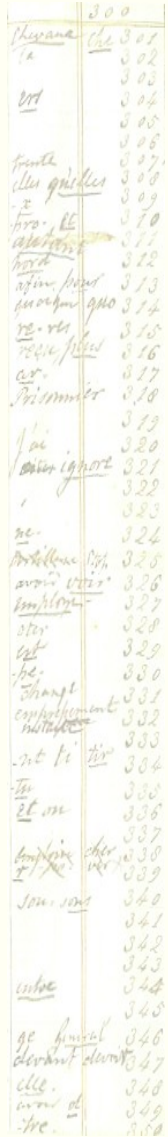 300
Chevaux che 301
la 302
303
ers 304
305
306
trente 307
elles quelles 308
-x 309
tro. et 310
autant 311
nord 312
afin, pour 313
quoique quo 314
re. res 315
reçu plus 316
ar. 317
Prisonnier 318
319
j'ai 320
ignore 321
322
323
ne. 324
325
avoir voir 326
employe- 327
oter 328
est 329
-pe. 330
change 331
332
333
-nt ti tir 334
-tu 335
et on 336
337
cher 338
339
son. sous 340
341
342
343
entre 344
345
ge general 346
devant devoit 347
elle. 348
avoir 349
-tre. 350